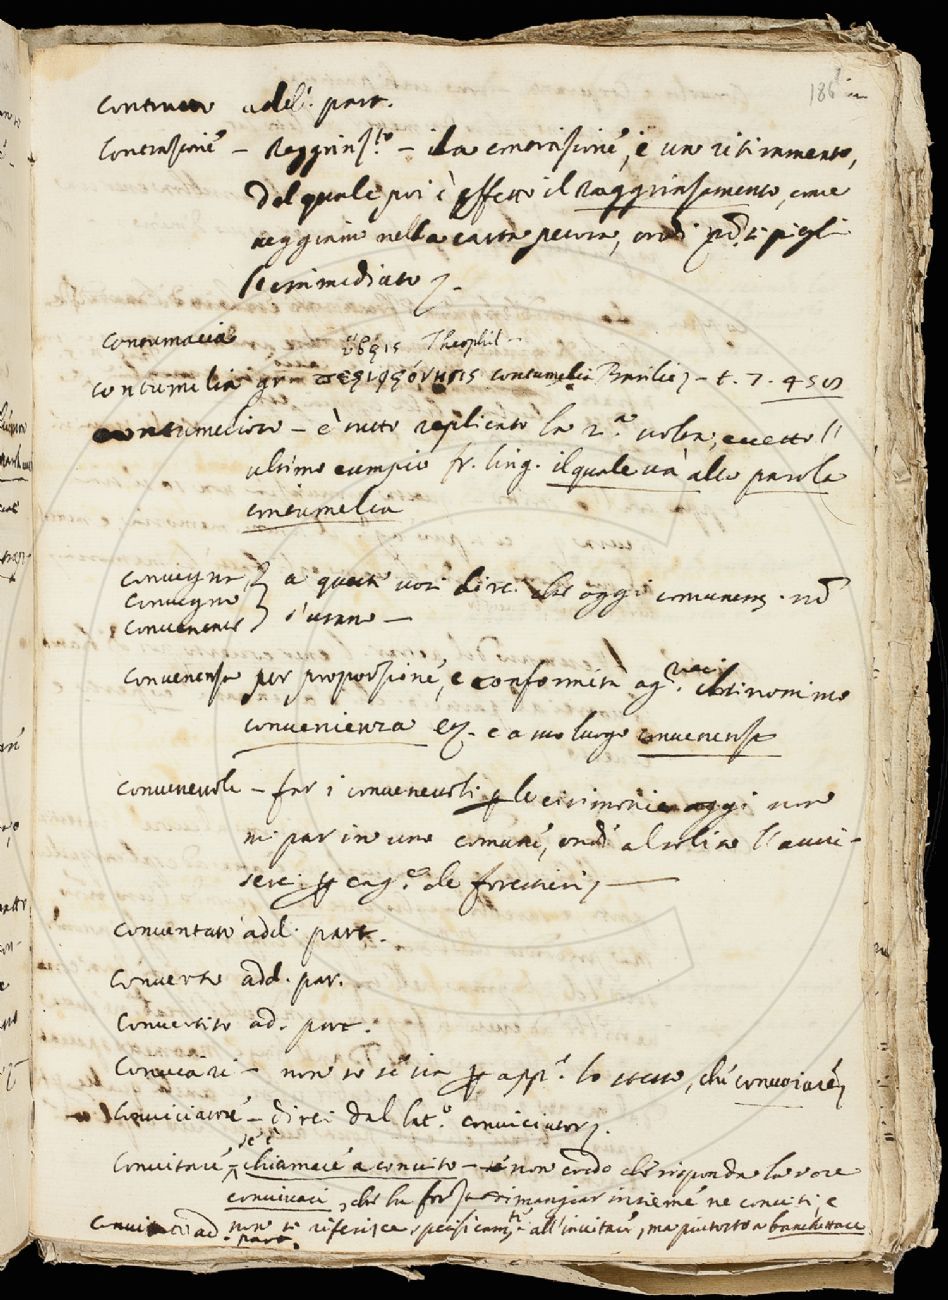 186
contratto adđ. part.
Contrazione – Raggrinz.to – è la contrazione, è un ritiramento,
del quale poi è effetto il raggrinzamento, come
veggiam nella carta pecora, ondi si pigli
contumacia
ὕβρις Theophil.
contumelia gr. contumelia Basilic. – t. 7. 450
contumelioso – è tutto replicato la 2.a volta, eccetto l'
ultimo esempio fr. ling. il quale và alla parola
contumelia
convegna
convegno } a queste voci direi che oggi comunem. nō
convenente s'usano –
convenenza per proporzione, e conformità ag. sinonimo
convenienza e a suo luogo convenenza
convenevole – far i convenevoli le cirimonie oggi non
mi par in uso comune, onde al solito l'avvi-
serei cag.e de forestieri –
conventato add. part.
converso add. par.
convertito ad. part.
Conviare – non so se sia app.o lo stesso, che convoiare
Conviciatore – direi dal lat.o conviciator.
se è
Convitare chiamare a convito – non credo che risponda la voce
convivari, che ha forza di mangiar insieme ne conviti, e
non si riferisca specificam.te all'invitare, ma piuttosto a banchettare
convitato ad. part.